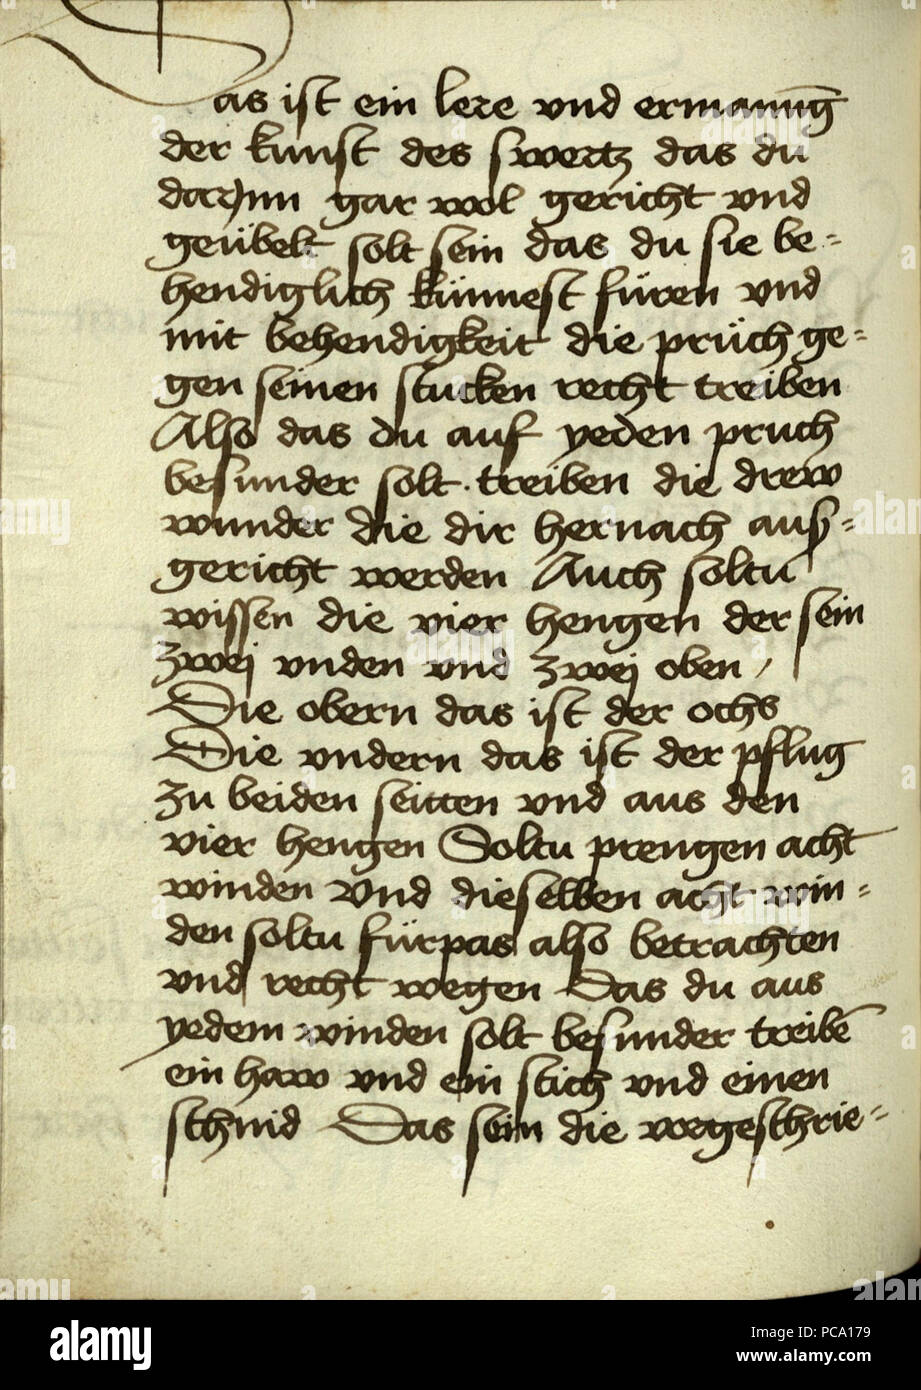 Das ist ein lere vnd ermanu̅g
der kunst des swertz das du
darjnn gar wol gericht vnd
geübelt solt sein das du sie be=
hendiglich künnest füren vnd
mit behendigkeit die prüch ge=
gen seinen stucken recht treiben
Also das du auf yeden pruch
besunder solt treiben die drew
wunder die dir hernach auß=
gericht werden Auch soltu
wissen die vier hengen der sein
zwej vnden vnd zwej oben /
Die obern das ist der ochs
Die vndern das ist der pflug
zu beiden seitten vnd aus den
vier hengen Soltu prengen acht
winden Vnd dieselben acht win=
den soltu fürpas also betrachten
vnd recht wegen Das du aus
yedem winden solt besunder treibe̅
ein haw vnd ein stich vnd einen
schnid Das sein die vorgeschrie=
alamy
Image ID: PCA179
www.alamy.com